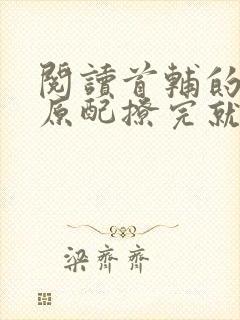 閱讀首輔的
原配撩完就
梁齊齊